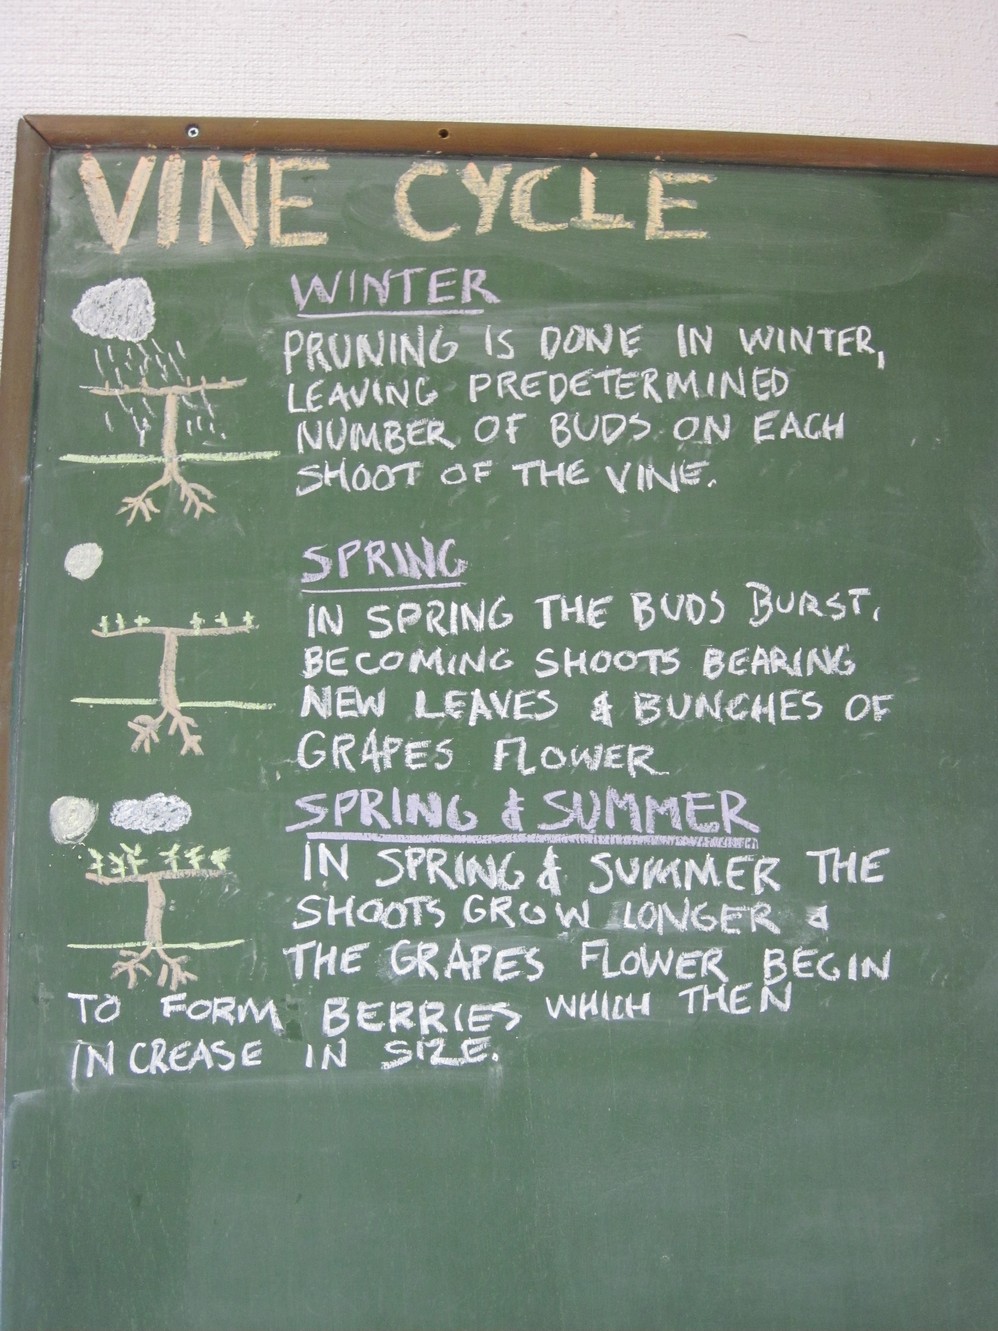 VINE CYCLE
WINTER
PRUNING IS DONE IN WINTER,
LEAVING PREDETERMINED
NUMBER OF BUDS ON EACH
SHOOT OF THE VINE.
SPRING
IN SPRING THE BUDS BURST,
BECOMING SHOOTS BEARING
NEW LEAVES & BUNCHES OF
GRAPES FLOWER
SPRING & SUMMER
IN SPRING & SUMMER THE
SHOOTS GROW LONGER &
THE GRAPES FLOWER BEGIN
TO FORM BERRIES WHICH THEN
INCREASE IN SIZE.